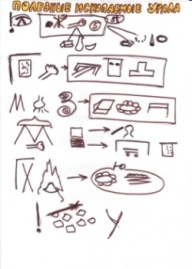 ПОЛЕЗНЫЕ ИСКОПАЕМЫЕ УРАЛА